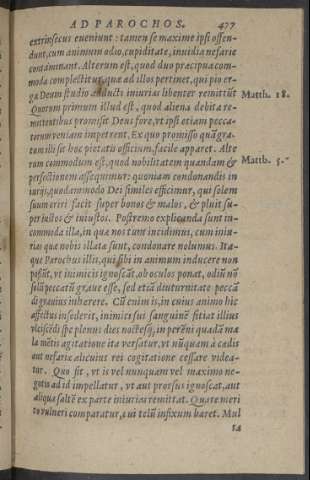 AD PAROCHOS. 477
extrinsecus eueniunt: tamen se maxime ipsi offen-
dunt, cum animum odio, cupiditate, inuidia nefarie
contaminant. Alterum est, quod duo præcipua com-
moda complectitur, quæ ad illos pertinet, qui pio er-
ga Deum studio adducti iniurias libenter remittūt
Matth. 18.
Quorum primum illud est, quod aliena debita re-
mittentibus promisit Deus fore, vt ipsi etiam pecca-
torum veniam impetrent. Ex quo promisso quā gra-
tum illi sit hoc pietatis officium, facile apparet. Alte
rum commodum est, quod nobilitatem quandam &
Matth. 5.
perfectionem assequimur: quoniam condonandis in
iurijs, quodammodo Dei similes efficimur, qui solem
suum oriri facit super bonos & malos, & pluit su-
per iustos & iniustos. Postremo explicanda sunt in-
commoda illa, in quæ nos tum incidimus, cum iniu-
rias quæ nobis illata sunt, condonare nolumus. Ita-
que Parochus illis, qui sibi in animum inducere non
possūt, vt inimicis ignoscāt, ob oculos ponat, odiū nō
solū peccatū graue esse, sed etiā diuturnitate peccā
di grauius inherere. Cū enim is, in cuius animo hic
affectus insederit, inimici sui sanguinē sitiat illius
vlciscēdi spe plenus dies noctesq́;, in perēni quadā ma
la mētis agitatione ita versatur, vt nūquam à cædis
aut nefariæ alicuius rei cogitatione cessare videa-
tur. Quo fit, vt is vel nunquam vel maximo ne-
gotio ad id impellatur, vt aut prorsus ignoscat, aut
aliqua saltē ex parte iniurias remittat. Quare meri
to vulneri comparatur, cui telū infixum hæret. Mul
ta